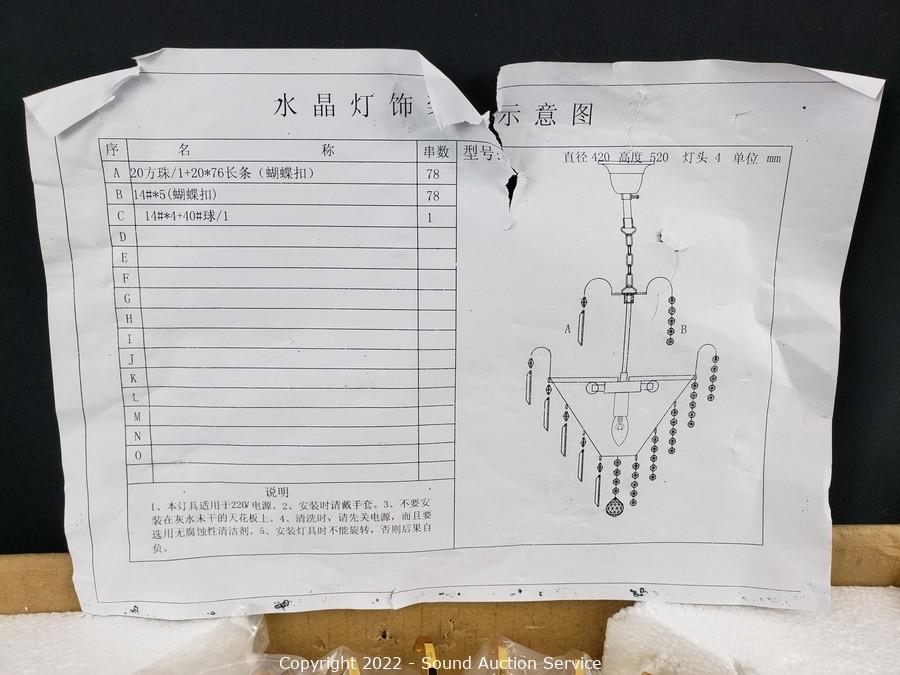 水晶灯饰 示意图
序 名 称 串数
型号:
直径 420 高度 520 灯头 4 单位 mm
A 20方珠/1+20*76长条（蝴蝶扣） 78
B 14#*5(蝴蝶扣) 78
C 14#*4+40#球/1 1
D
E
F
G
H
I
J
K
L
M
N
O
A B
说明
1、本灯具适用于220V电源。2、安装时请戴手套。3、不要安
装在灰水未干的天花板上。4、清洗时，请先关电源，而且要
选用无腐蚀性清洁剂。5、安装灯具时不能旋转，否则后果自
负。
Copyright 2022 - Sound Auction Service